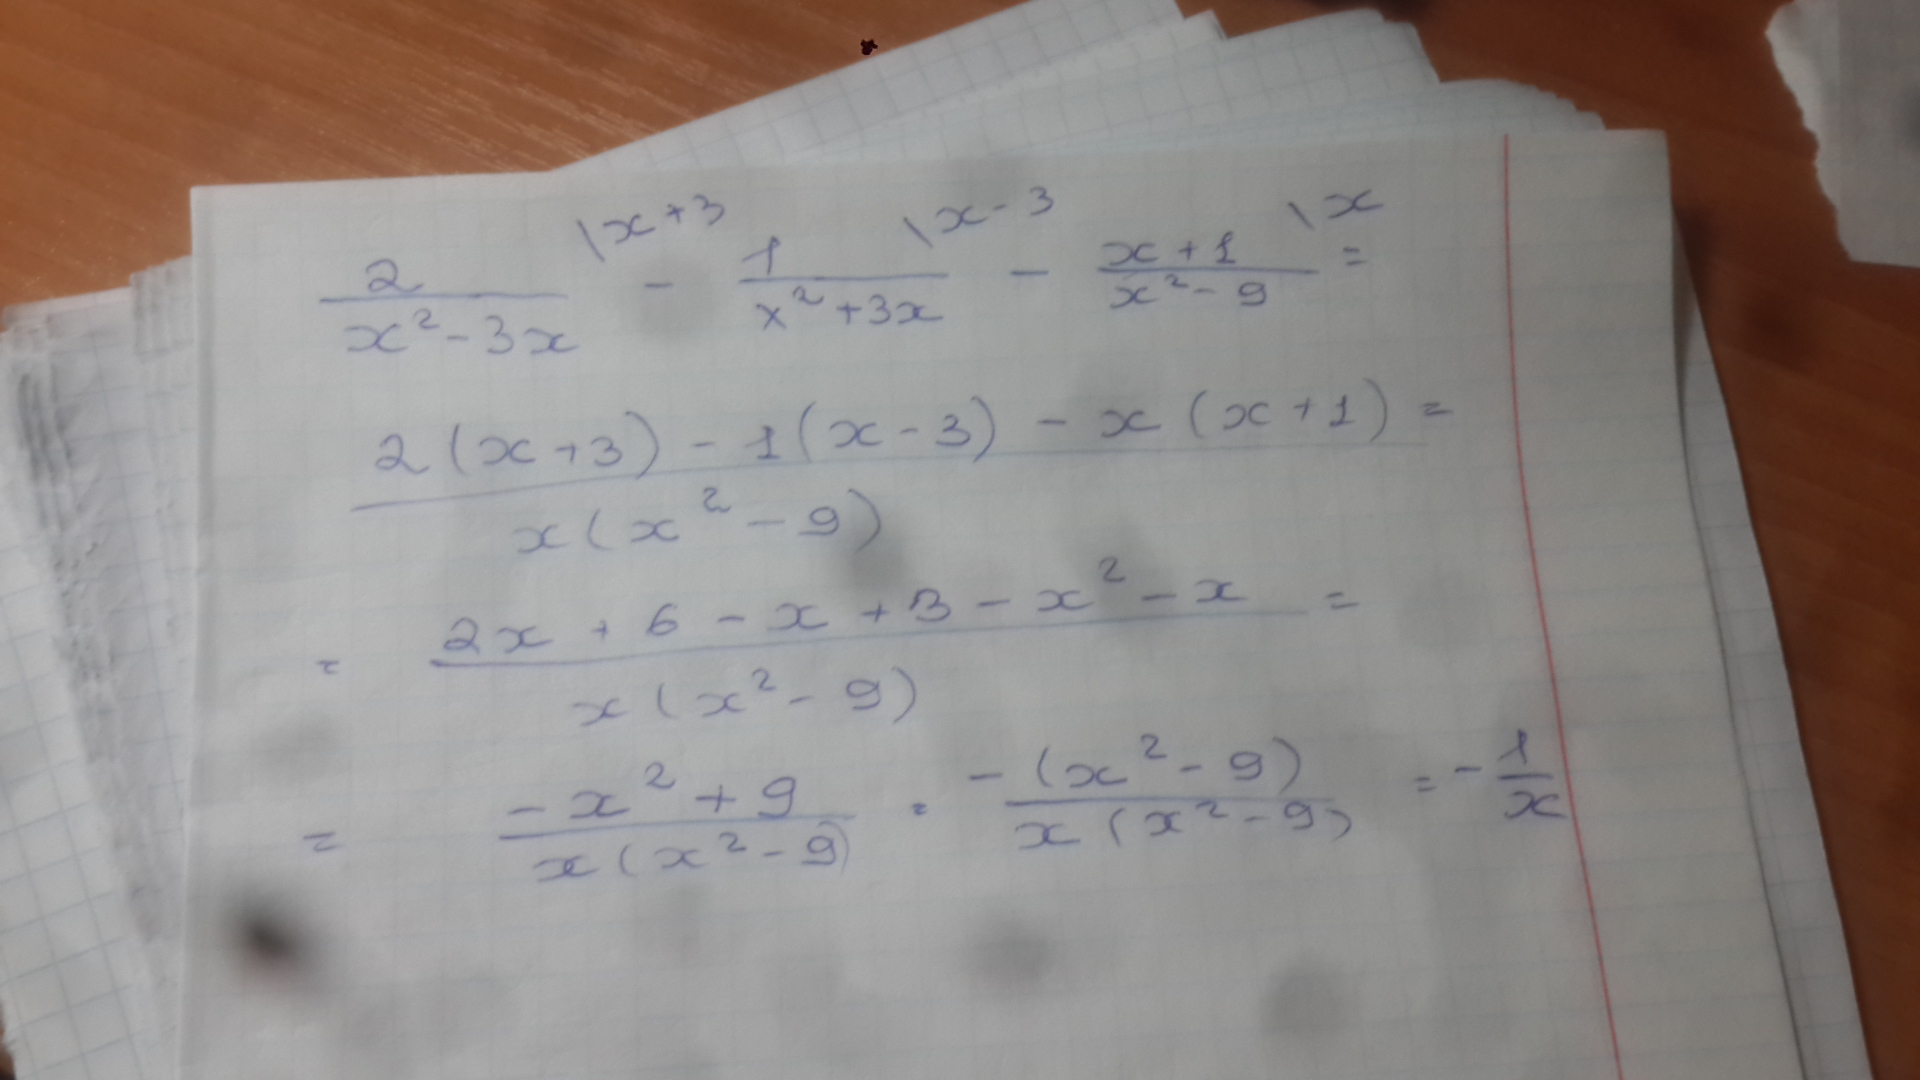 2/(x² - 3x) \x+3 - 1/(x² + 3x) \x-3 - (x+1)/(x² - 9) \x =
(2(x+3) - 1(x-3) - x(x+1))/(x(x² - 9)) =
= (2x + 6 - x + 3 - x² - x)/(x(x² - 9)) =
= (-x² + 9)/(x(x² - 9)) = -(x² - 9)/(x(x² - 9)) = -1/x